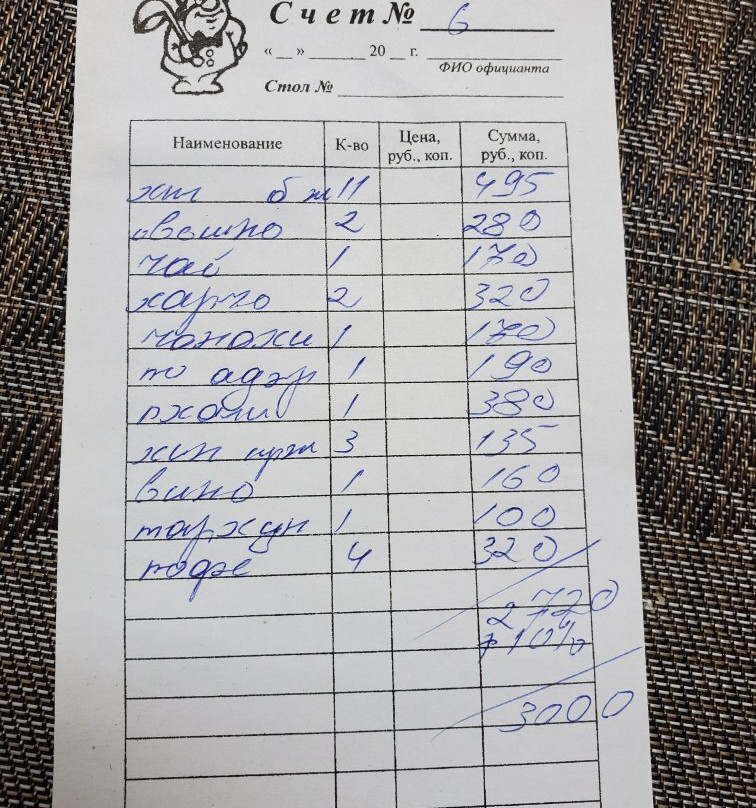 Счет № 6
« » 20 г.
ФИО официанта
Стол №
Наименование К-во Цена, руб., коп. Сумма, руб., коп.
хин бж 11 495
овощно 2 280
чай 1 170
харчо 2 320
чанахи 1 170
по аджр 1 190
пхали 1 380
хин жрж 3 135
вино 1 160
тархун 1 100
кофе 4 320
2720
+10%
3000